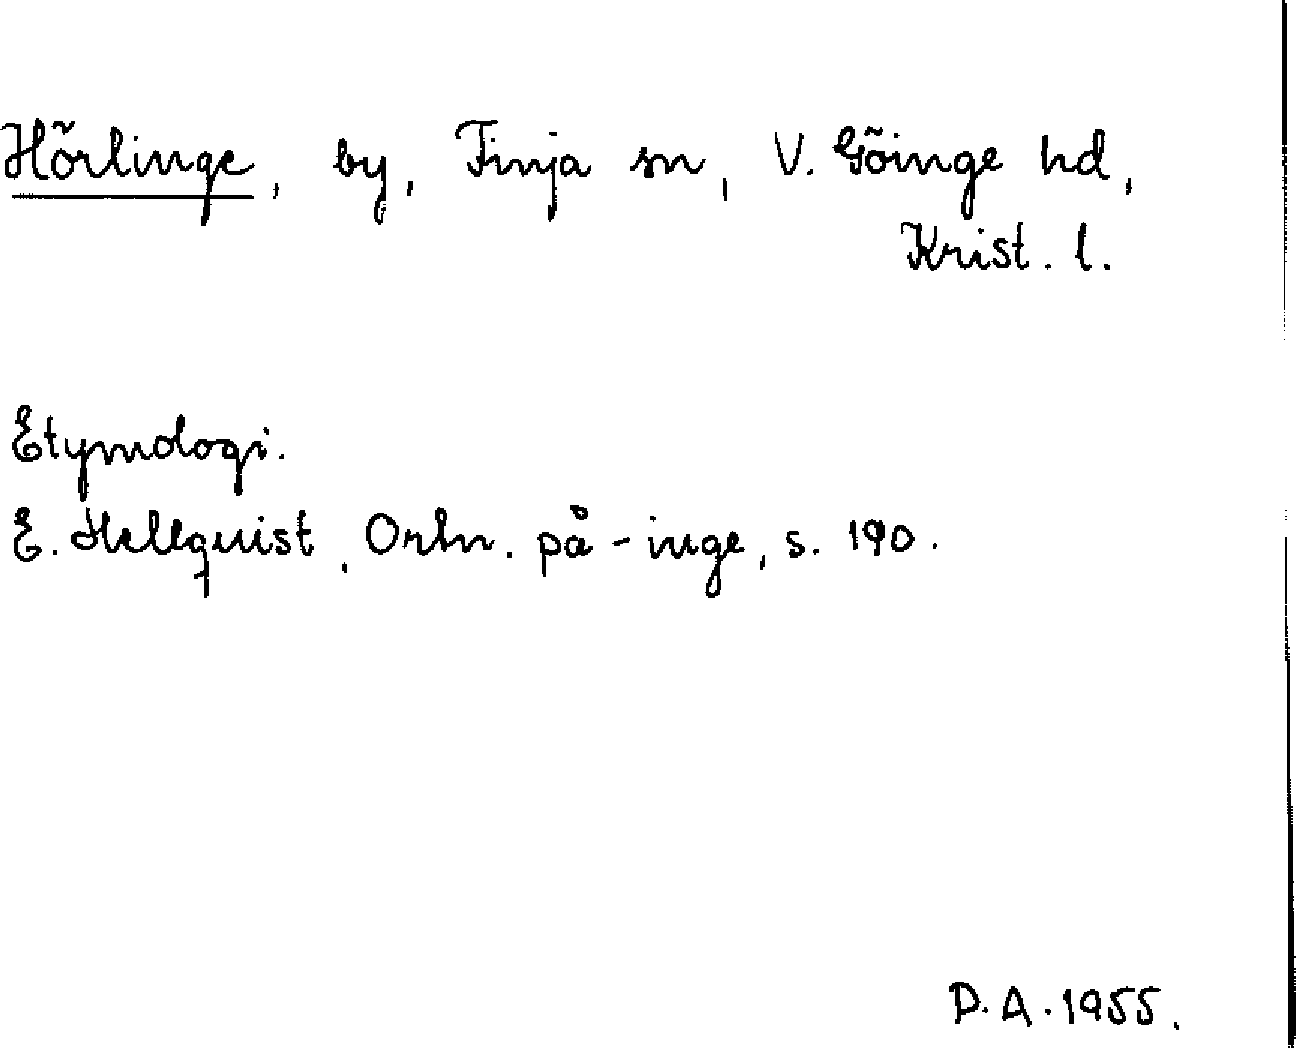 Hörlinge, by, Finja sn, V. Göinge hd,
Krist. l.
Etymologi.
E. Hellquist, Ortn. på -inge, s. 190.
D.A. 1955.